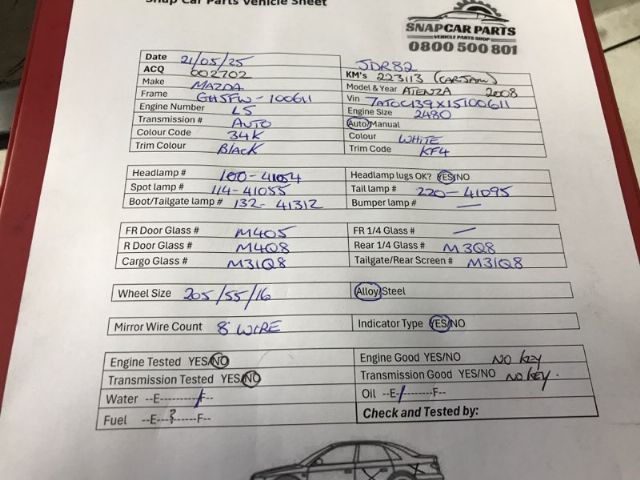 Snap Car Parts Vehicle Sheet
SNAPCAR PARTS
VEHICLE PARTS SHOP
0800 500 801
Date 21/05/25 JDR82
ACQ 002702 KM's 223113 (CARJAM)
Make MAZDA Model & Year ATENZA 2008
Frame GH5FW-100611 Vin 7AT0C139X15100611
Engine Number L5 Engine Size 2480
Transmission # AUTO Auto/Manual
Colour Code 34K Colour WHITE
Trim Colour BLACK Trim Code KF4
Headlamp # 100-41054 Headlamp lugs OK? YES/NO
Spot lamp # 114-41055 Tail lamp # 220-41095
Boot/Tailgate lamp # 132-41312 Bumper lamp # —
FR Door Glass # M405 FR 1/4 Glass # —
R Door Glass # M4Q8 Rear 1/4 Glass # M3Q8
Cargo Glass # M31Q8 Tailgate/Rear Screen # M31Q8
Wheel Size 205/55/16 Alloy/Steel
Mirror Wire Count 8 WIRE Indicator Type YES/NO
Engine Tested YES/NO Engine Good YES/NO NO KEY
Transmission Tested YES/NO Transmission Good YES/NO NO KEY.
Water --E----------F-- Oil --E-/--------F--
Fuel --E---?------F-- Check and Tested by: